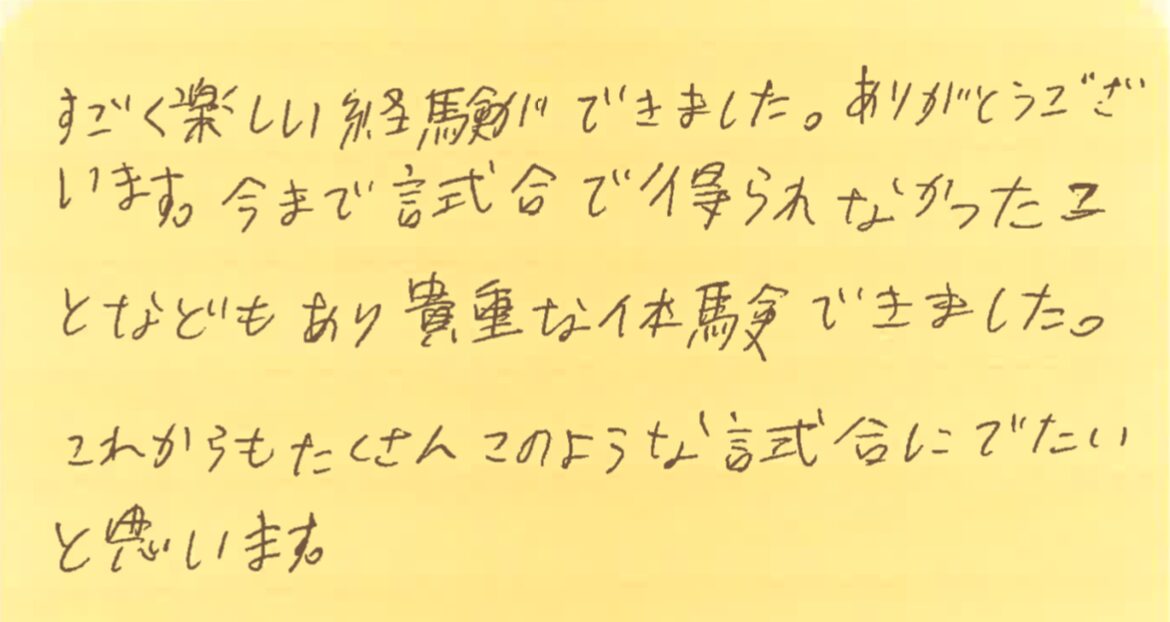 すごく楽しい経験ができました。ありがとうござ
います。今まで試合で得られなかったこ
となどもあり貴重な体験できました。
これからもたくさんこのような試合にでたい
と思います。